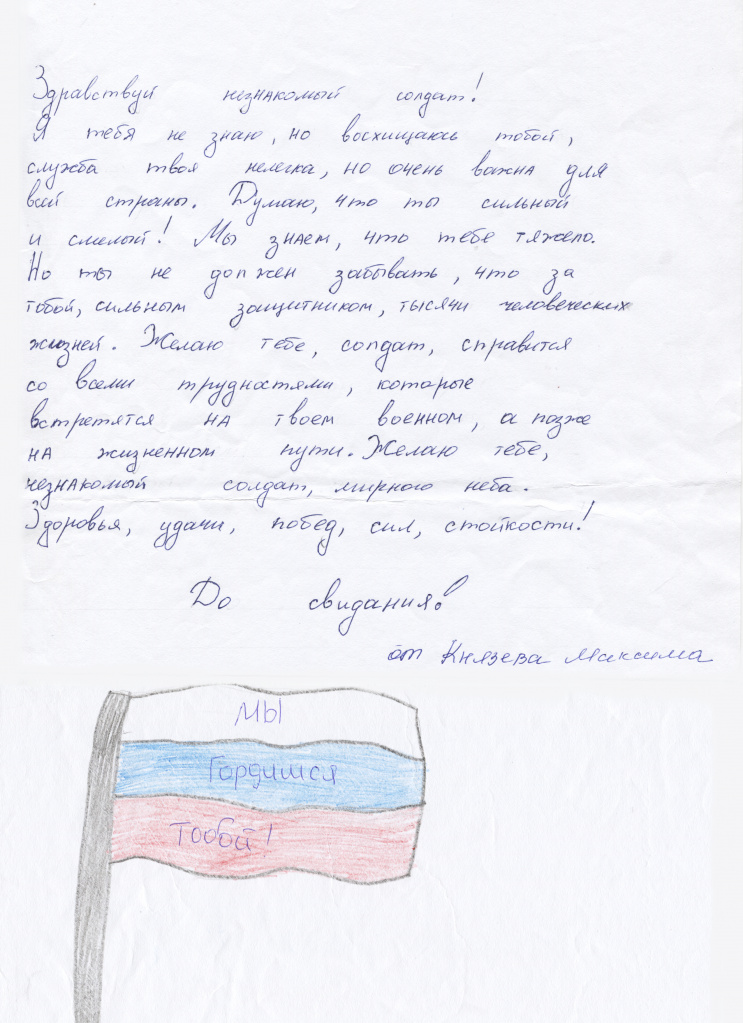 Здравствуй незнакомый солдат!
Я тебя не знаю, но восхищаюсь тобой,
служба твоя нелегка, но очень важна для
всей страны. Думаю, что ты сильный
и смелый! Мы знаем, что тебе тяжело.
Но ты не должен забывать, что за
тобой, сильным защитником, тысячи человеческих
жизней. Желаю тебе, солдат, справится
со всеми трудностями, которые
встретятся на твоем военном, а позже
на жизненном пути. Желаю тебе,
незнакомый солдат, мирного неба.
Здоровья, удачи, побед, сил, стойкости!
До свидания!
от Князева Максима
МЫ
Гордимся
тобой!